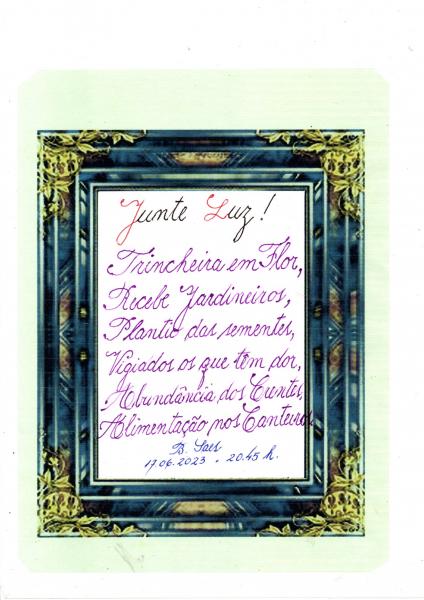 Junte Luz!
Trincheira em Flor,
Recebe Jardineiros,
Plantio das sementes,
Vigiados os que têm dor,
Abundância dos Crentes,
Alimentação nos Canteiros
B. Saes
17.06.2023 . 20.45 h.